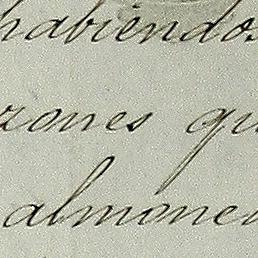 habiendos
zones qu
almoned